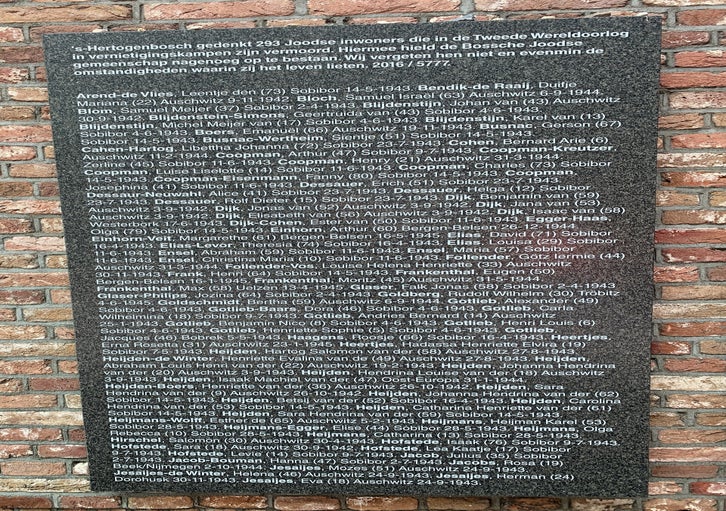 's-Hertogenbosch gedenkt 293 Joodse inwoners die in de Tweede Wereldoorlog
in vernietigingskampen zijn vermoord. Hiermee hield de Bossche Joodse
gemeenschap nagenoeg op te bestaan. Wij vergeten hen niet en evenmin de
omstandigheden waarin zij het leven lieten. 2016 / 5777.
Arend-de Vries, Leentje den (73) Sobibor 14-5-1943. Bendik-de Raaij, Duifje
Mariana (22) Auschwitz 9-11-1942. Bloch, Samuel Israël (63) Auschwitz 6-9-1944.
Blom, Samuel Meijer (37) Sobibor 2-4-1943. Blijdenstijn, Johan van (43) Auschwitz
30-9-1942. Blijdenstein-Simons, Geertruida van (43) Sobibor 4-6-1943.
Blijdenstijn, Michel Meijer van (17) Sobibor 4-6-1943. Blijdenstijn, Karel van (13)
Sobibor 4-6-1943. Boers, Emanuël (66) Auschwitz 19-11-1943. Busnac, Gerson (67)
Sobibor 14-5-1943. Busnac-Wertheim, Sientje (51) Sobibor 14-5-1943.
Cahen-Hartog, Libetha Johanna (72) Sobibor 23-7-1943. Cohen, Bernard Arie (6)
Auschwitz 11-2-1944. Coopman, Arthur (47) Sobibor 9-7-1943. Coopman-Kreutzer,
Zerline (45) Sobibor 11-6-1943. Coopman, Henry (21) Auschwitz 31-3-1944.
Coopman, Luise Liselotte (14) Sobibor 11-6-1943. Coopman, Charles (73) Sobibor
14-5-1943. Coopman-Eisenmann, Fanny (69) Sobibor 14-5-1943. Coopman,
Josephina (41) Sobibor 11-6-1943. Dessauer, Erich (51) Sobibor 23-7-1943.
Dessauer-Neuwahl, Alice (41) Sobibor 23-7-1943. Dessauer, Helga (12) Sobibor
23-7-1943. Dessauer, Rolf Dieter (15) Sobibor 23-7-1943. Dijk, Benjamin van (59)
Auschwitz 3-9-1942. Dijk, Jonas van (58) Auschwitz 3-9-1942. Dijk, Jana van (53)
Auschwitz 3-9-1942. Dijk, Elisabeth van (56) Auschwitz 3-9-1942. Dijk, Isaac van (58)
Westerbork 17-6-1943. Dijk-Cohen, Ester van (50) Sobibor 11-6-1943. Egger-Haas,
Olga (75) Sobibor 14-5-1943. Einhorn, Arthur (60) Bergen-Belsen 26-12-1944.
Einhorn-Veit, Margarethe (61) Bergen-Belsen 10-5-1945. Elias, David (71) Sobibor
16-4-1943. Elias-Levor, Theresia (74) Sobibor 16-4-1943. Elias, Louisa (29) Sobibor
11-6-1943. Ensel, Abraham (59) Sobibor 11-6-1943. Ensel, Maria (57) Sobibor
11-6-1943. Ensel, Christina Maria (10) Sobibor 11-6-1943. Follender, Götz Iermie (44)
Auschwitz 31-3-1944. Follender-Vos, Louise Helena Henriette (33) Auschwitz
30-11-1943. Frank, Henri (64) Sobibor 14-5-1943. Frankenthal, Eugen (50)
Bergen-Belsen 16-1-1945. Frankenthal, Moritz (45) Auschwitz 11-5-1944.
Frankenthal, Max (58) Uelzen 13-4-1945. Glaser, Falk Jonas (58) Sobibor 2-4-1943
Glaser-Philips, Jozina (64) Sobibor 2-4-1943. Goldberg, Rudolf Wilhelm (30) Tröbitz
4-6-1945. Goldschmidt, Bertha (59) Auschwitz 6-9-1944. Gotlieb, Alexander (49)
Sobibor 4-6-1943. Gotlieb-Baars, Dora (46) Sobibor 4-6-1943. Gotlieb, Carla
Wilhelmina (18) Sobibor 9-7-1943. Gotlieb, Andries Bernard (14) Auschwitz
25-1-1943. Gotlieb, Benjamin Nico (8) Sobibor 4-6-1943. Gotlieb, Henri Louis (6)
Sobibor 4-6-1943. Gotlieb, Henriette Sophie (5) Sobibor 4-6-1943. Gotlieb,
Jacques (46) Bobrek 5-5-1943. Haagens, Roosje (66) Sobibor 16-4-1943. Heertjes,
Erna Rosetta (31) Auschwitz 23-1-1945. Heertjes, Hadassa Henriette Elvira (19)
Sobibor 7-5-1943. Heijden, Hartog Salomon van der (58) Auschwitz 27-8-1943
Heijden-de Winter, Henriette Evalina van der (49) Auschwitz 27-8-1943. Heijden,
Abraham Louis Henri van der (22) Auschwitz 19-2-1943. Heijden, Johanna Hendrina
van der (20) Auschwitz 3-9-1943. Heijden, Hendrina Louise van der (18) Auschwitz
3-9-1943. Heijden, Isaak Machiel van der (47) Oost-Europa 31-1-1944.
Heijden-Boers, Henriette van der (36) Auschwitz 26-10-1942. Heijden, Sara
Hendrina van der (9) Auschwitz 26-10-1942. Heijden, Johanna Hendrina van der (62)
Sobibor 14-5-1943. Heijden, Betsij van der (52) Sobibor 16-4-1943. Heijden, Carolina
Hendrina van der (53) Sobibor 14-5-1943. Heijden, Catharina Henriette van der (61)
Sobibor 14-5-1943. Heijden, Sara Hendrina van der (59) Sobibor 14-5-1943.
Heijmans-Wolff, Esther de (65) Auschwitz 5-2-1943. Heijmans, Heijman Karel (53)
Sobibor 28-5-1943. Heijmans-Egger, Elise (44) Sobibor 28-5-1943. Heijmans, Olga
Hibernia (10) Sobibor 28-5-1943. Heijmans, Catharina (13) Sobibor 28-5-1943.
Hirschel, Salomon (30) Auschwitz 30-4-1943. Hofstede, Isaak (76) Sobibor 9-7-1943.
Hofstede, Sara (18) Auschwitz 30-9-1942. Hofstede, Lea Kaatje (17) Sobibor
9-7-1943. Hofstede, Levie (14) Sobibor 9-7-1943. Jacob, Julius (35) Sobibor
2-7-1943. Jacob-Bouman, Hanna (47) Sobibor 2-7-1943. Jacobs, Rosa (19)
Beek/Nijmegen 2-10-1944. Jessajies, Mozes (51) Auschwitz 24-9-1943.
Jessajies-de Winter, Helena (46) Auschwitz 24-9-1943. Jessajies, Herman (24)
Dorohusk 30-11-1943. Jessajies, Eva (18) Auschwitz 24-9-1943.